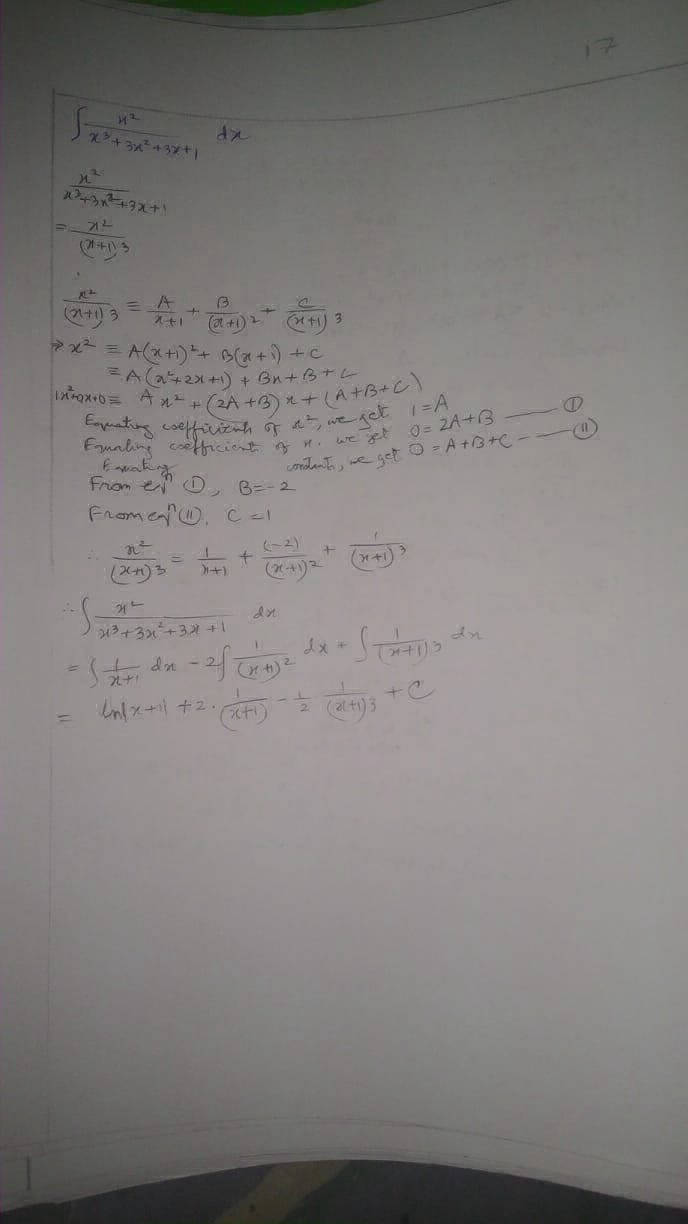 17
∫ x²/(x³+3x²+3x+1) dx
x²/(x³+3x²+3x+1)
= x²/(x+1)³
x²/(x+1)³ ≡ A/(x+1) + B/(x+1)² + C/(x+1)³
⇒ x² ≡ A(x+1)² + B(x+1) + C
≡ A(x²+2x+1) + Bx + B + C
1x²+0x+0 ≡ Ax² + (2A+B)x + (A+B+C)
Equating coefficients of x², we get 1 = A
Equating coefficient of x. we get 0 = 2A+B —— (I)
Equating , we get 0 = A+B+C —— (II)
From eqⁿ (I), B = -2
From eqⁿ (II), C = 1
∴ x²/(x+1)³ = 1/(x+1) + (-2)/(x+1)² + 1/(x+1)³
∴ ∫ x²/(x³+3x²+3x+1) dx
= ∫ 1/(x+1) dx - 2∫ 1/(x+1)² dx + ∫ 1/(x+1)³ dx
= ln|x+1| + 2 · 1/(x+1) - 1/2 1/(x+1)³ + C